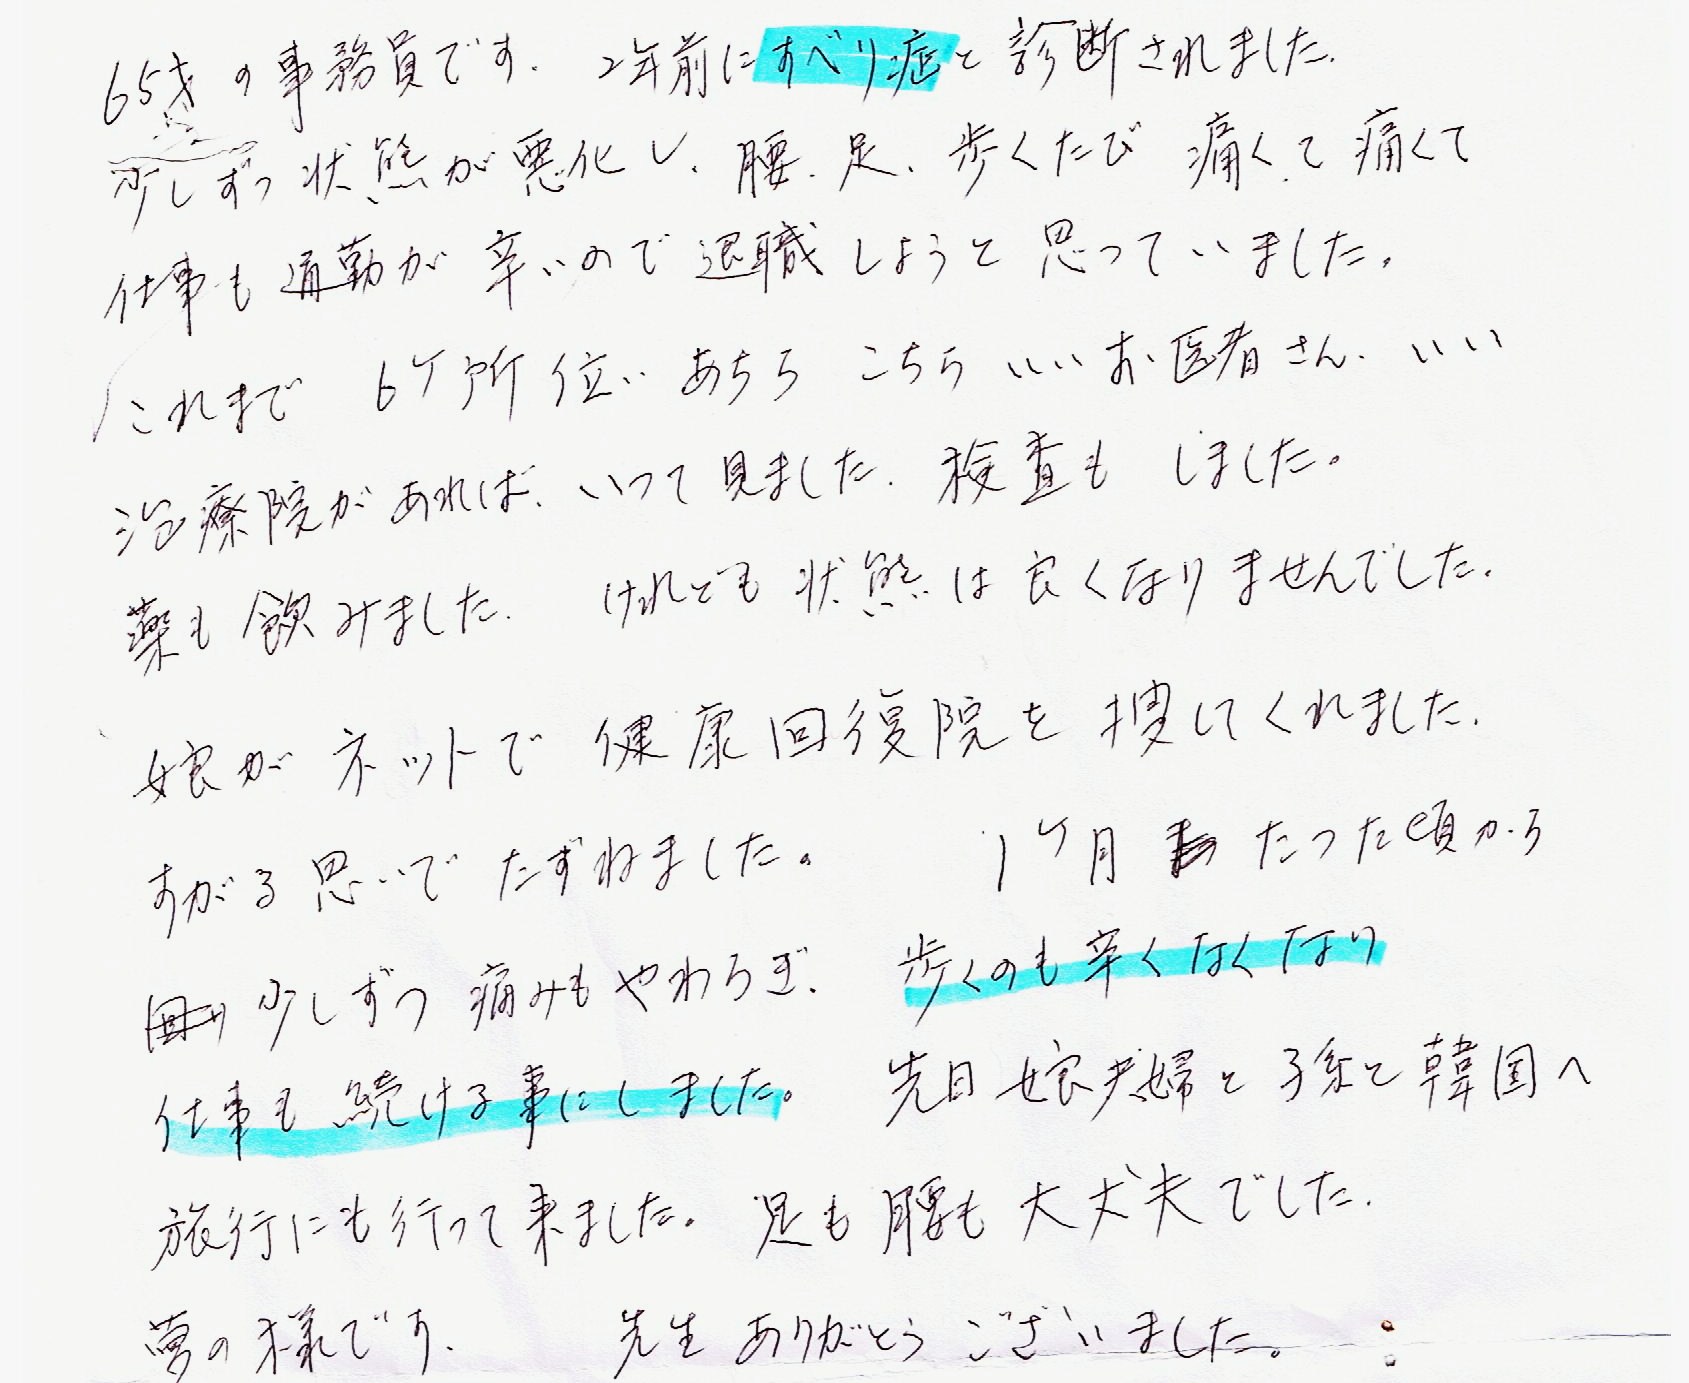 65才の事務員です. 2年前にすべり症と診断されました.
少しずつ状態が悪化し、腰、足、歩くたび 痛くて痛くて
仕事も通勤が辛いので退職しようと思っていました。
これまで 6ケ所位い あちら こちら いいお医者さん、いい
治療院があれば、いって見ました. 検査も しました。
薬も飲みました. けれども状態は良くなりませんでした.
娘がネットで 健康回復院を捜してくれました.
すがる思いでたずねました。 1ケ月 たった頃から
少しずつ痛みもやわらぎ、 歩くのも辛くなくなり
仕事も続ける事にしました。 先日娘夫婦と子孫と韓国へ
旅行にも行って来ました。足も腰も大丈夫でした.
夢の様です. 先生ありがとうございました。